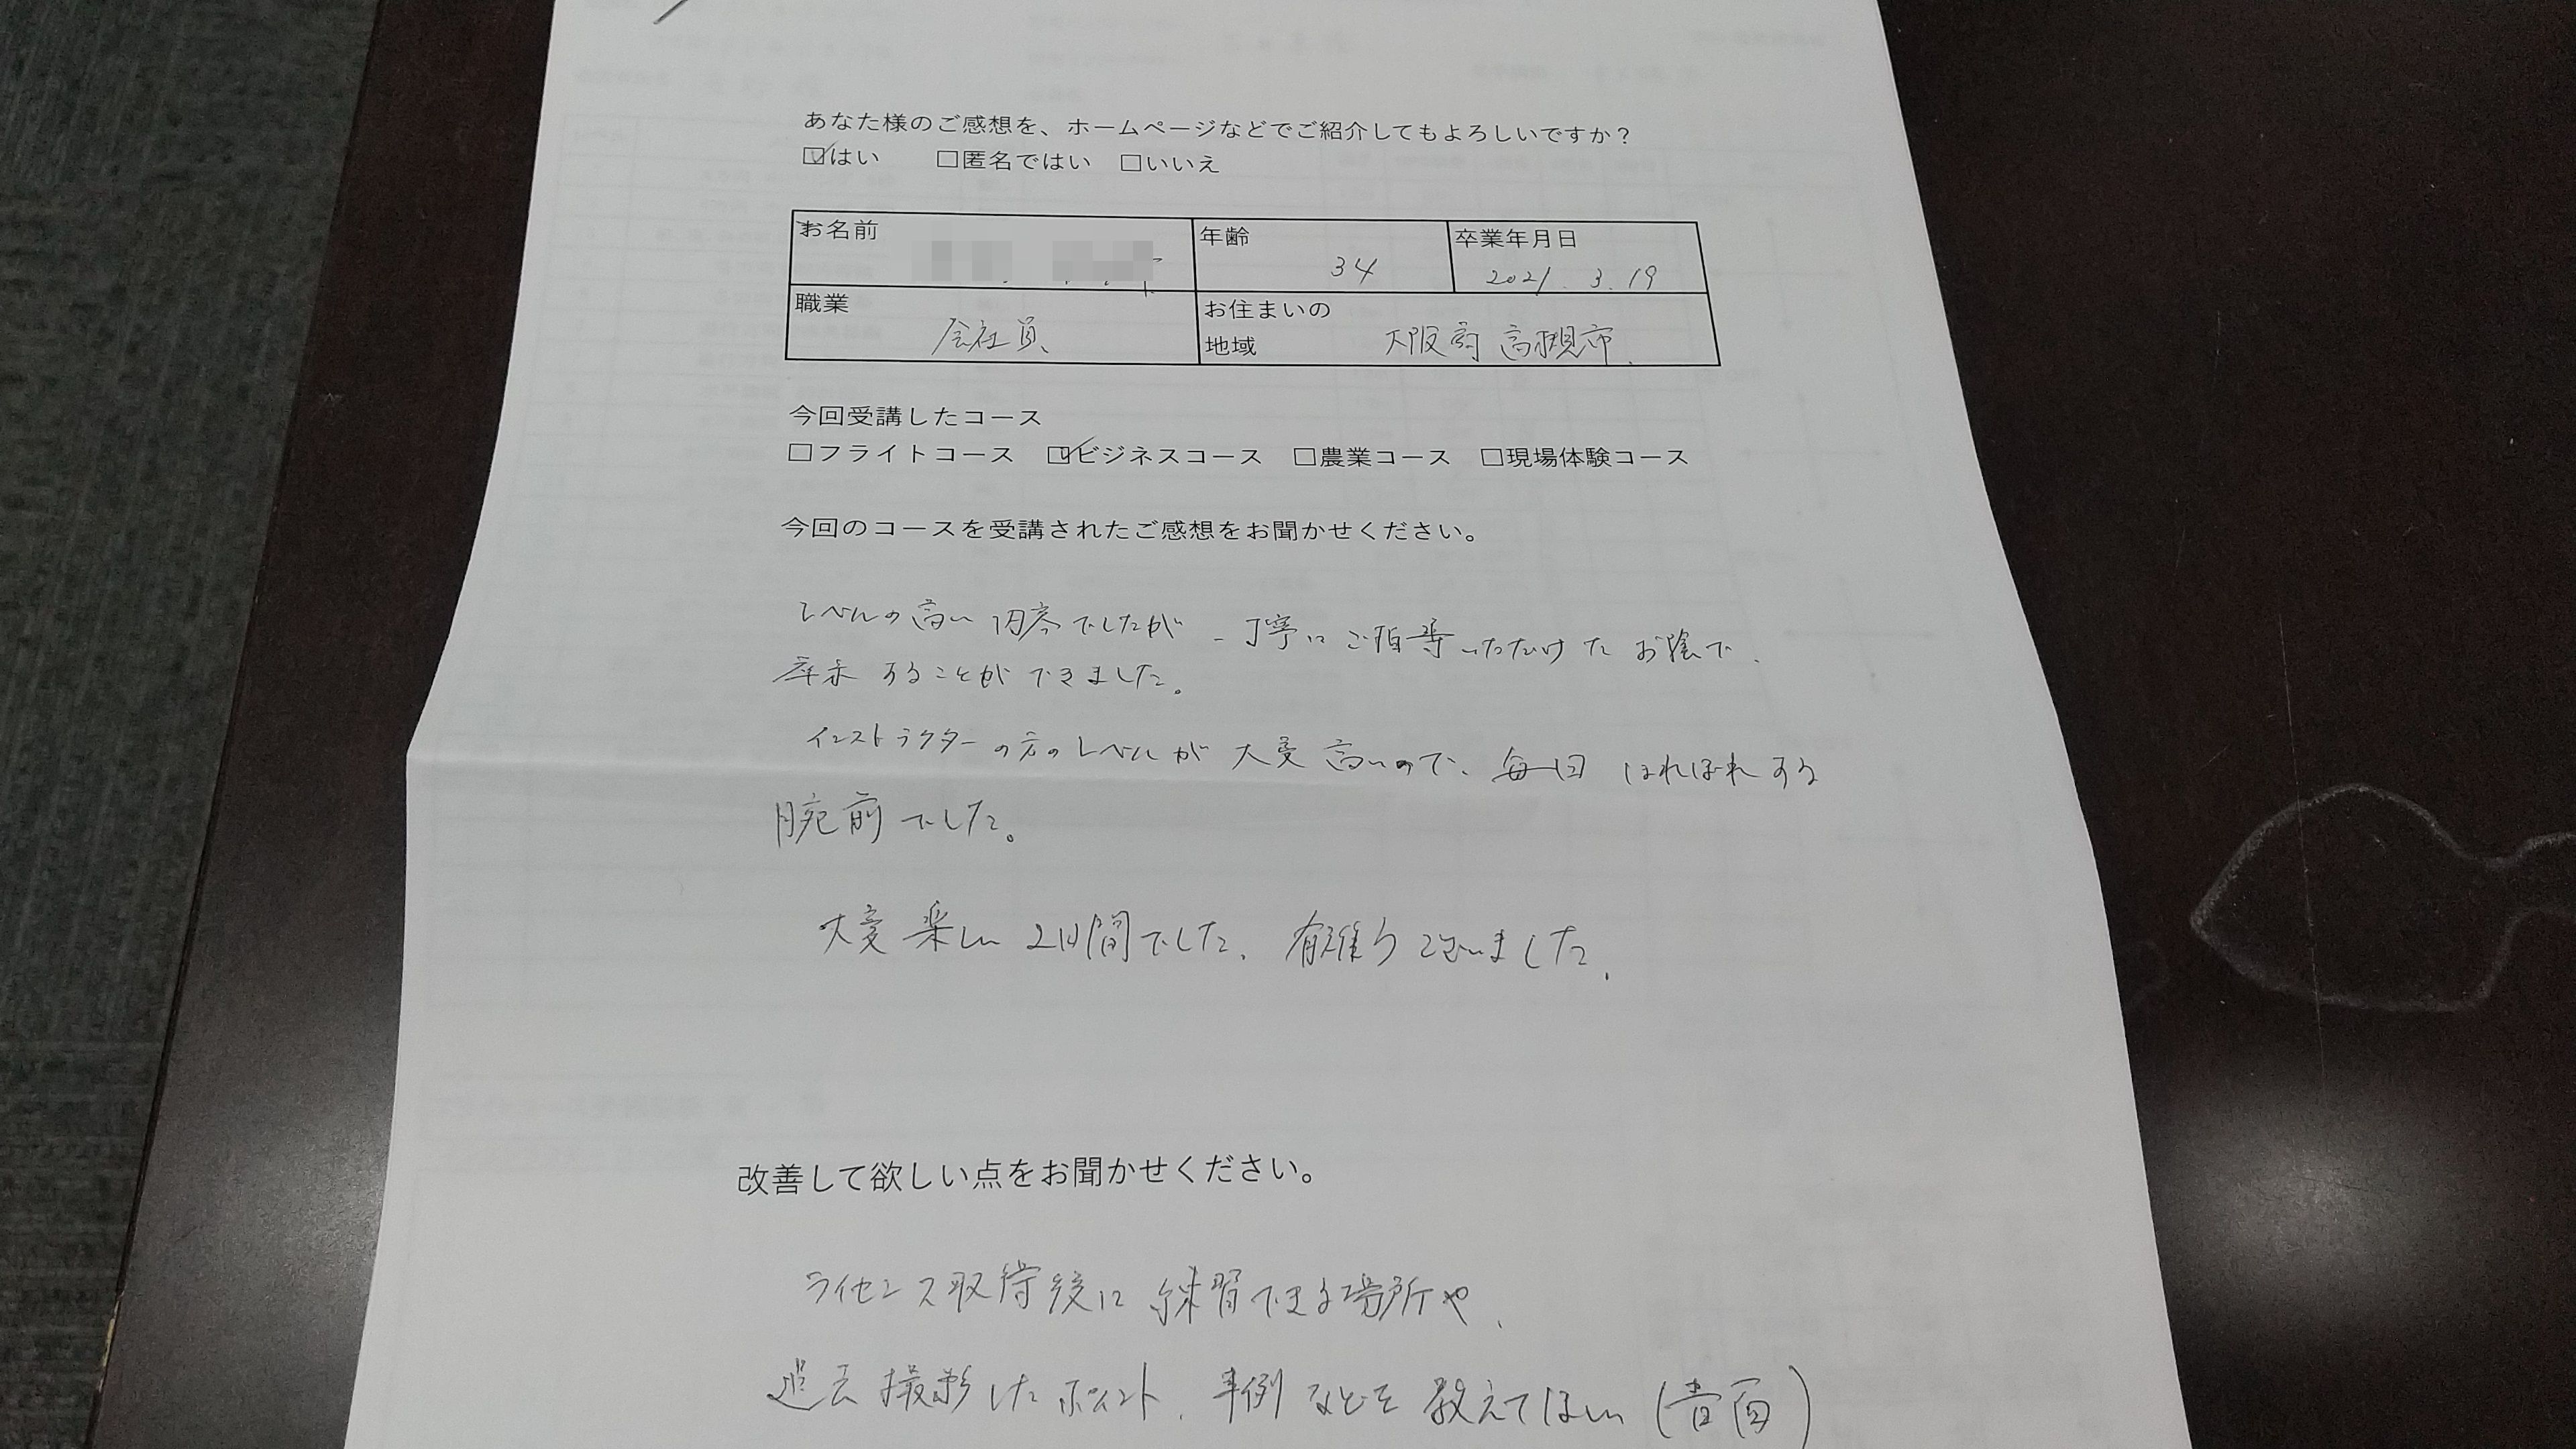 あなた様のご感想を、ホームページなどでご紹介してもよろしいですか?
☑はい □匿名ではい □いいえ
お名前 年齢 34 卒業年月日 2021.3.19
職業 会社員 お住まいの地域 大阪府高槻市
今回受講したコース
□フライトコース ☑ビジネスコース □農業コース □現場体験コース
今回のコースを受講されたご感想をお聞かせください。
レベルの高い内容でしたが丁寧にご指導いただけたお陰で、
することができました。
インストラクターの方のレベルが大変高いので、毎回ほれぼれする
腕前でした。
大変楽しい2日間でした。有難うございました。
改善して欲しい点をお聞かせください。
ライセンス取得後に練習できる場所や、
過去撮影したポイント、事例などを教えてほしい(書面)